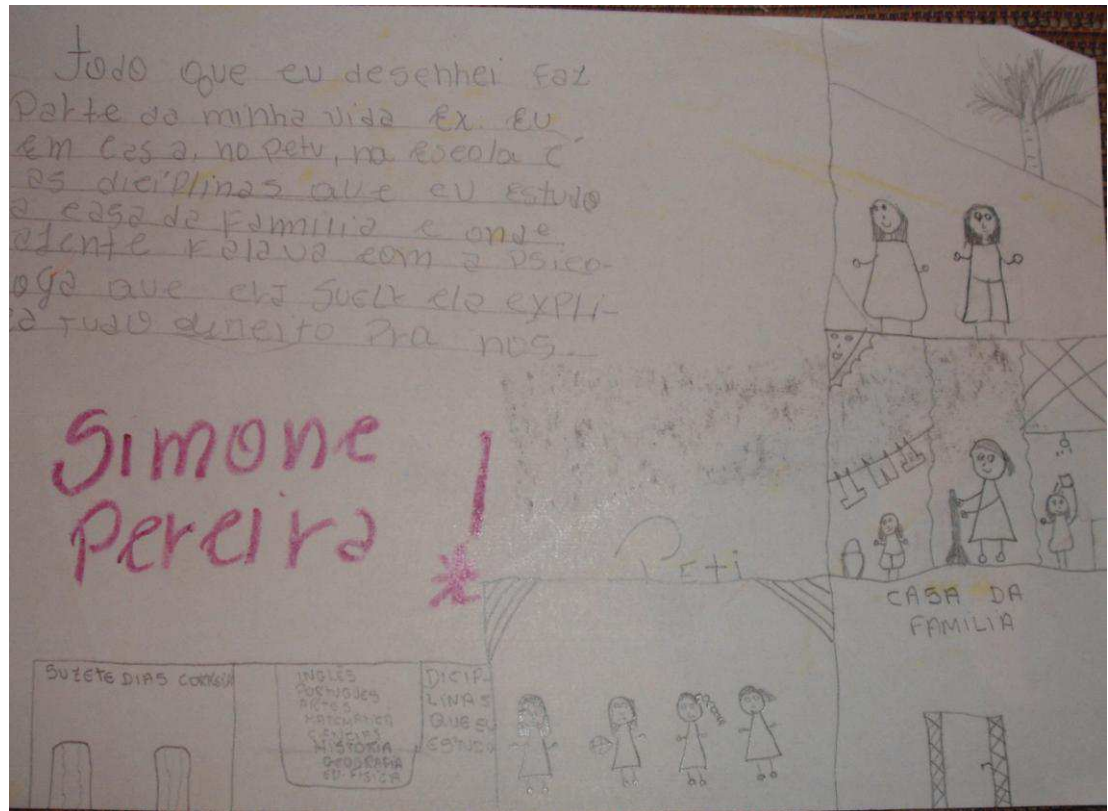 todo que eu desenhei faz
Parte da minha vida Ex. Eu
Em casa, no petu, na escola é
as diciplinas que eu estudo
a casa da Familia e onde
falava com a Psico-
oga que era ela expli-
tudo direito Pra nos
Simone
Pereira !
Peti
CASA DA
FAMILIA
SUZETE DIAS CORREIA
INGLÊS
PORTUGUES
ARTES
MATEMÁTICA
CIENCIAS
HISTORIA
GEOGRAFIA
ED. FISICA
DICIP-
LINAS
QUE EU
ESTUDO